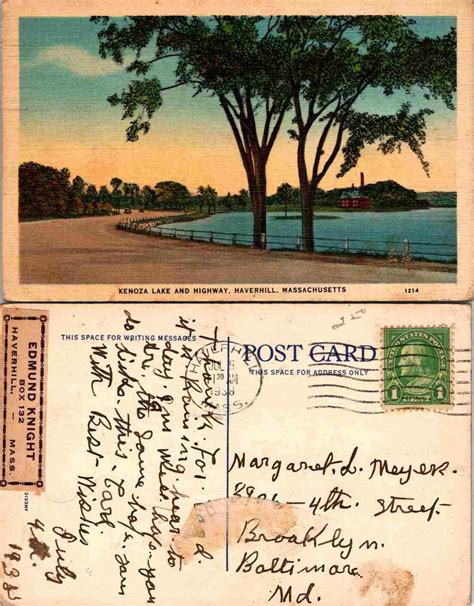 KENOZA LAKE AND HIGHWAY, HAVERHILL, MASSACHUSETTS
1214
EDMUND KNIGHT
BOX 132
HAVERHILL, MASS.
THIS SPACE FOR WRITING MESSAGES
POST CARD
THIS SPACE FOR ADDRESS ONLY
HAVERHILL
JUL 5
AM
1938
MASS.
1 1
Thanks For
it is raining
day, am
be the same hope you
do like this Card
With Best Wishes
July
4th 1938
Margaret L. Meyer
4th Street
Brooklyn
Baltimore
Md.